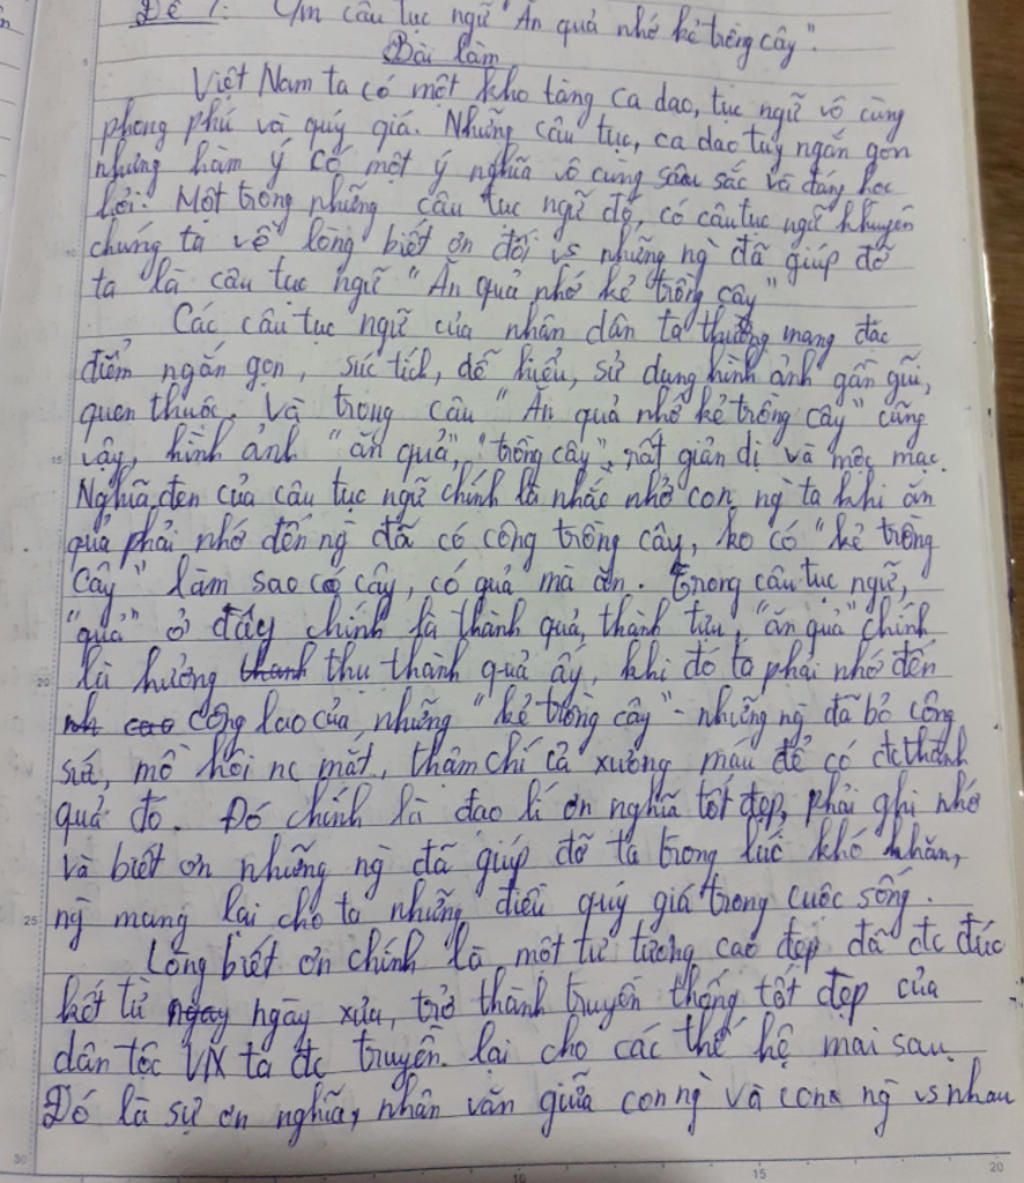 Đề 1: C/m câu tục ngữ "Ăn quả nhớ kẻ trồng cây".
Bài làm
Việt Nam ta có một kho tàng ca dao, tục ngữ vô cùng
phong phú và quý giá. Những câu tục, ca dao tuy ngắn gọn
nhưng hàm ý có một ý nghĩa vô cùng sâu sắc và đáng học
hỏi. Một trong những câu tục ngữ đó, có câu tục ngữ khuyên
chúng ta về lòng biết ơn đối vs những ng` đã giúp đỡ
ta là câu tục ngữ "Ăn quả nhớ kẻ trồng cây"
Các câu tục ngữ của nhân dân ta thường mang đặc
điểm ngắn gọn, súc tích, dễ hiểu, sử dụng hình ảnh gần gũi,
quen thuộc. Và trong câu "Ăn quả nhớ kẻ trồng cây" cũng
vậy, hình ảnh "ăn quả", "trồng cây", rất giản dị và mộc mạc.
Nghĩa đen của câu tục ngữ chính là nhắc nhở con ng` ta khi ăn
quả phải nhớ đến ng` đã có công trồng cây, ko có "kẻ trồng
cây" làm sao có cây, có quả mà ăn. Trong câu tục ngữ,
"quả" ở đây chính là thành quả, thành tựu, "ăn quả" chính
là hưởng thanh thụ thành quả ấy, khi đó ta phải nhớ đến
nh cao công lao của những "kẻ trồng cây" - những ng` đã bỏ công
sứ, mồ hôi nc mắt, thậm chí cả xương máu để có đc thành
quả đó. Đó chính là đạo lí ơn nghĩa tốt đẹp, phải ghi nhớ
và biết ơn những ng` đã giúp đỡ ta trong lúc khó khăn,
ng` mang lại cho ta những điều quý giá trong cuộc sống.
Lòng biết ơn chính là một tư tưởng cao đẹp đã đc đúc
kết từ ngay ngày xưa, trở thành truyền thống tốt đẹp của
dân tộc VN ta đc truyền lại cho các thế hệ mai sau.
Đó là sự ơn nghĩa, nhân văn giữa con ng` và con ng` vs nhau
30 10 15 20